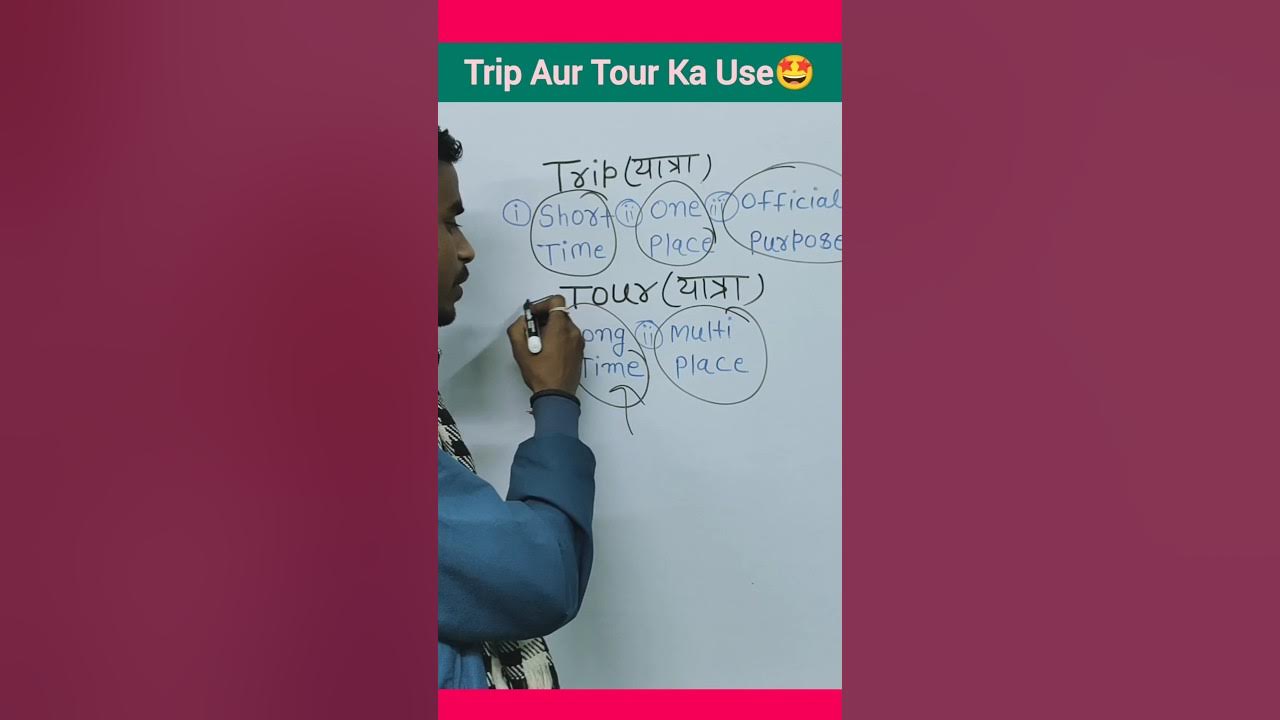 Trip Aur Tour Ka Use🤩
Trip (यात्रा)
i Short ii One iii Official
Time Place Purpose
Tour (यात्रा)
ong ii Multi
Time Place